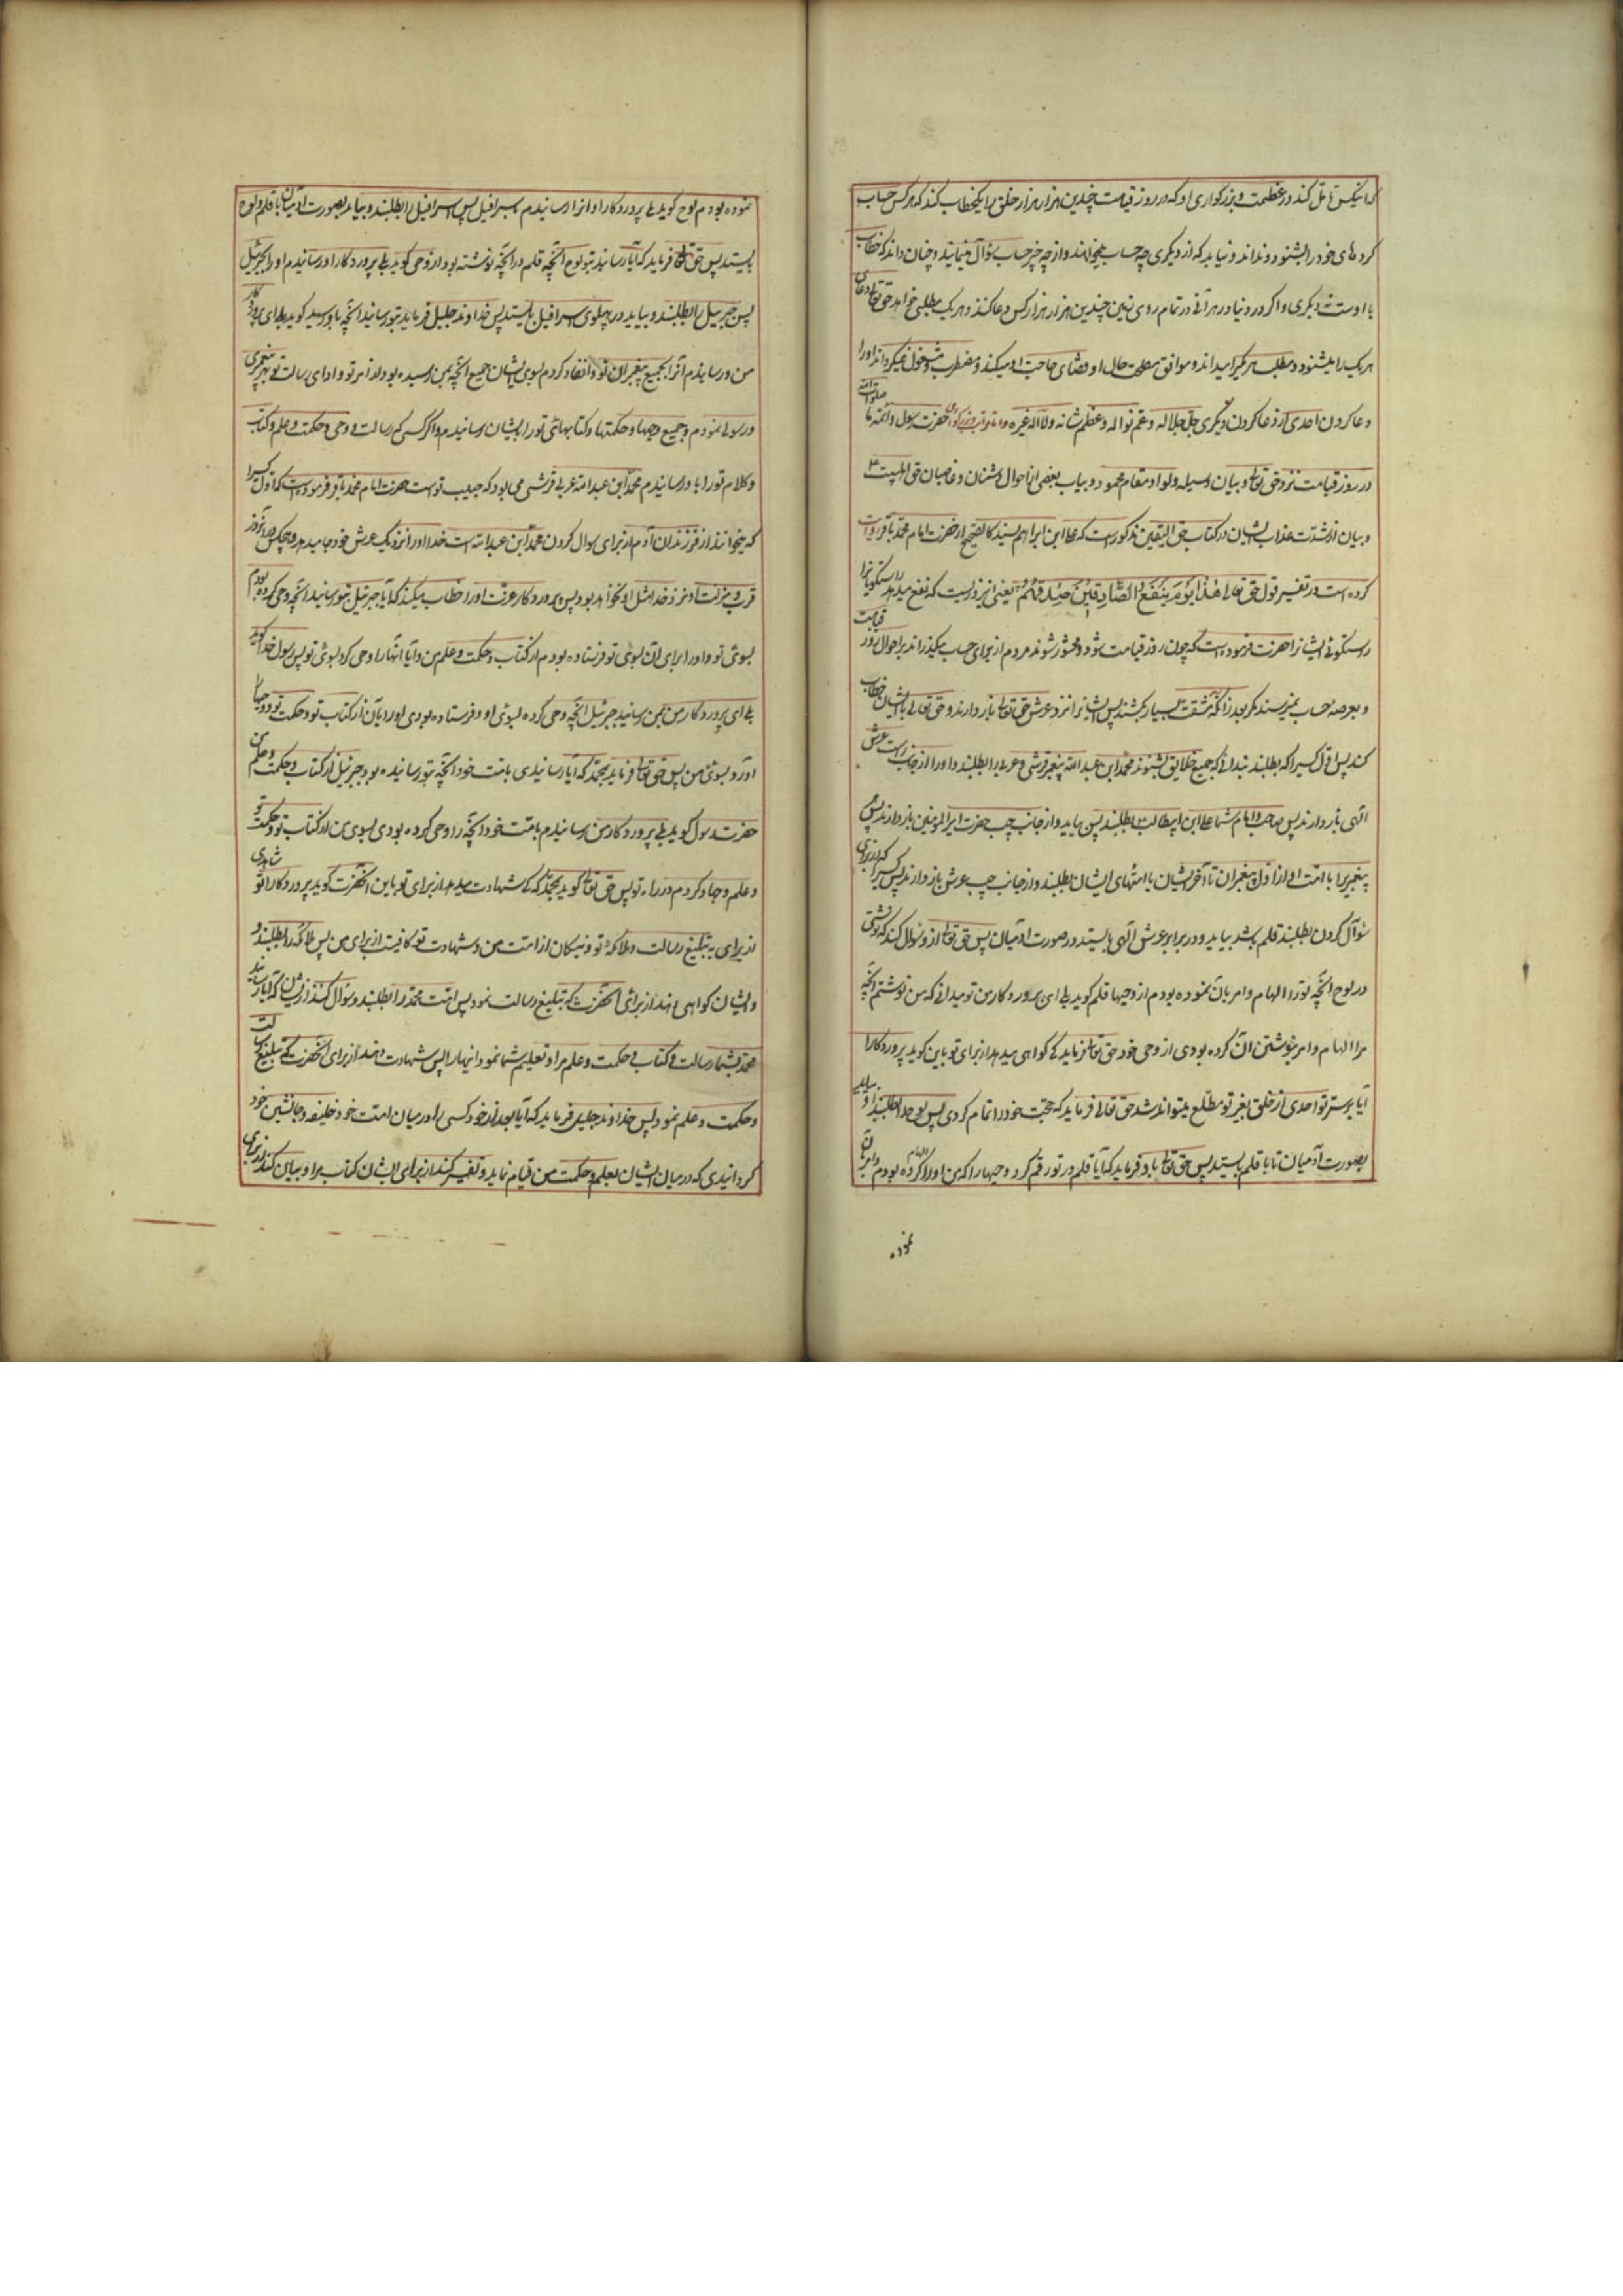 کردهای خود را بشنود و نداند و نیابد که از دیگری چه حساب میخواهند و از چه چیز حساب سؤال مینماید و چنان داند که خطاب
با اوست نه دیگری و اگر در دنیا در هر آنی در تمام روی زمین چندین هزار هزار کس دعا کند و هر یک مطلبی خواهد حق تعالی دعای
هر یک را میشنود و مطلب هر یکرا میداند و موافق مصلحت حال او قضای حاجت او میکند و مضطرب و مشغول نمیگرداند او را
دعا کردن احدی از دعا کردن دیگری جل جلاله و عم نواله و عظم شانه ولا اله غیره حضرت رسول و ائمه ما صلوات الله
در روز قیامت نزد حق تعالی و بیان وسیله و لوا و مقام محمود و بیان بعضی از احوال دشمنان و غاصبان حق اهلبیت
و بیان از شدت عذاب ایشان در کتاب حق الیقین مذکور است که علی ابن ابراهیم بسند کالصحیح از حضرت امام محمد باقر روایت
کرده است در تفسیر قول حق تعالی هٰذَا یَوْمُ یَنْفَعُ الصَّادِقِینَ صِدْقُهُمْ یعنی این روزیست که نفع میدهد راستگویانرا
راستگوئی ایشان حضرت فرموده است که چون روز قیامت شود و محشور شوند مردم از برای حساب میگذراند بر احوال روز قیامت
و بعرصه حساب نمیرسند مگر بعد از آنکه مشقت بسیار بکشند پس ایشانرا نزد عرش حق تعالی باز دارند و حق تعالی با ایشان خطاب
کند پس اول کسیرا که بطلبند ندائی که جمیع خلایق بشنوند محمد ابن عبد الله پیغمبر قرشی و عربی را بطلبند و او را از جانب راست عرش
الهی باز دارند پس صاحب و امام شما علی ابن ابیطالب را بطلبند پس بیاید و از جانب چپ حضرت امیر المومنین باز دارند پس
پیغمبریرا با امت او از اول پیغمبران تا آخر ایشان با امتهای ایشان بطلبند و از جانب چپ عرش باز دارند پس کسیرا که از برای
سؤال کردن بطلبند قلم باشد بیاید و در برابر عرش الهی بایستد در صورت آدمیان پس حق تعالی از او سؤال کند که نوشتی
در لوح آنچه تو را الهام و امر بان نموده بودم از وحیها قلم گوید بلی ای پروردگار من تو میدانی که من نوشتم آنچه
مرا الهام و امر بنوشتن آن کرده بودی از وحی خود حق تعالی فرماید که کی گواهی میدهد از برای تو باین گوید پروردگارا
آیا بر ستر تو احدی از خلق بغیر تو مطلع میتواند شد حق تعالی فرماید که حجت خود را تمام کردی پس لوح را بطلبند او بیاید
بصورت آدمیان تا با قلم بایستد پس حق تعالی باو فرماید که آیا قلم در تو رقم کرد وحیها را که من او را الهام کرده بودم و امر بآن
نموده
نموده بودم لوح گوید بلی پروردگارا و آنرا رسانیدم باسرافیل پس اسرافیل را بطلبند و بیاید بصورت آدمیان با قلم و لوح
بایستد پس حق تعالی فرماید که آیا رسانید بتو لوح آنچه قلم در آنچه نوشته بود از وحی گوید بلی پروردگارا و رسانیدم او را بجبرئیل
پس جبرئیل را بطلبند و بیاید در پهلوی اسرافیل بایستد پس خداوند جلیل فرماید بتو رسانید آنچه باو رسید گوید بلی ای پروردگار
من و رسانیدم آنرا بجمیع پیغمبران تو و انفاد کردم بسوی ایشان جمیع آنچه بمن رسیده بود از امر تو و ادای رسالت تو بهر پیغمبری
و رسولی نمودم و جمیع وحیها و حکمتها و کتابهای تو را بایشان رسانیدم و آخر کسی که رسالت و وحی و حکمت و علم و کتاب
و کلام تو را باو رسانیدم محمد ابن عبد الله عربی قرشی حرمی بود که حبیب توست حضرت امام محمد باقر فرموده است که اول کسیرا
که بخوانند از فرزندان آدم از برای سوال کردن محمد ابن عبد الله است خدا او را نزدیک عرش خود جا میدهد و هیچکس در آنروز
قرب و منزلت او نزد خدا مثل او نخواهد بود پس پروردگار عزت او را خطاب میکند که آیا جبرئیل بتو رسانید آنچه وحی کرده بودم
بسوی تو و او را برای آن بسوی تو فرستاده بودم از کتاب و حکمت و علم من و آیا آنها را وحی کرد بسوی تو پس رسول خدا گوید
بلی ای پروردگار من بمن رسانید جبرئیل آنچه وحی کرده بسوی او و فرستاده بودی او را بآن از کتاب تو و حکمت تو و وحیها
آورد بسوی من پس حق تعالی فرماید بمحمد که آیا رسانیدی بامت خود آنچه بتو رسانیده بود جبرئیل از کتاب و حکمت و علم من
حضرت رسول گوید بلی پروردگار من رسانیدم بامت خود آنچه را وحی کرده بودی بسوی من از کتاب تو و حکمت تو
و علم و جهاد کردم در راه تو پس حق تعالی گوید بمحمد که کی شهادت میدهد از برای تو باین آنحضرت گوید پروردگارا تو شاهدی
از برای به تبلیغ رسالت و ملائکه تو و نیکان از امت من و شهادت تو کافیست از برای من پس ملائکه را بطلبند و
و ایشان گواهی دهند از برای آنحضرت که تبلیغ رسالت نمود پس امت محمد را بطلبند و سؤال کنند از ایشان که آیا رسانید
محمد بشما رسالت و کتاب و حکمت و علم مرا و تعلیم شما نمود اینها را پس شهادت دهند از برای آنحضرت که تبلیغ رسالت
و حکمت و علم نمود پس خداوند جلیل فرماید که آیا بعد از خود کسی را در میان امت خود خلیفه و جانشین خود
گردانیدی که در میان ایشان بعلم و حکمت من قیام نماید و تفسیر کند از برای ایشان کتاب مرا و بیان کند از برای